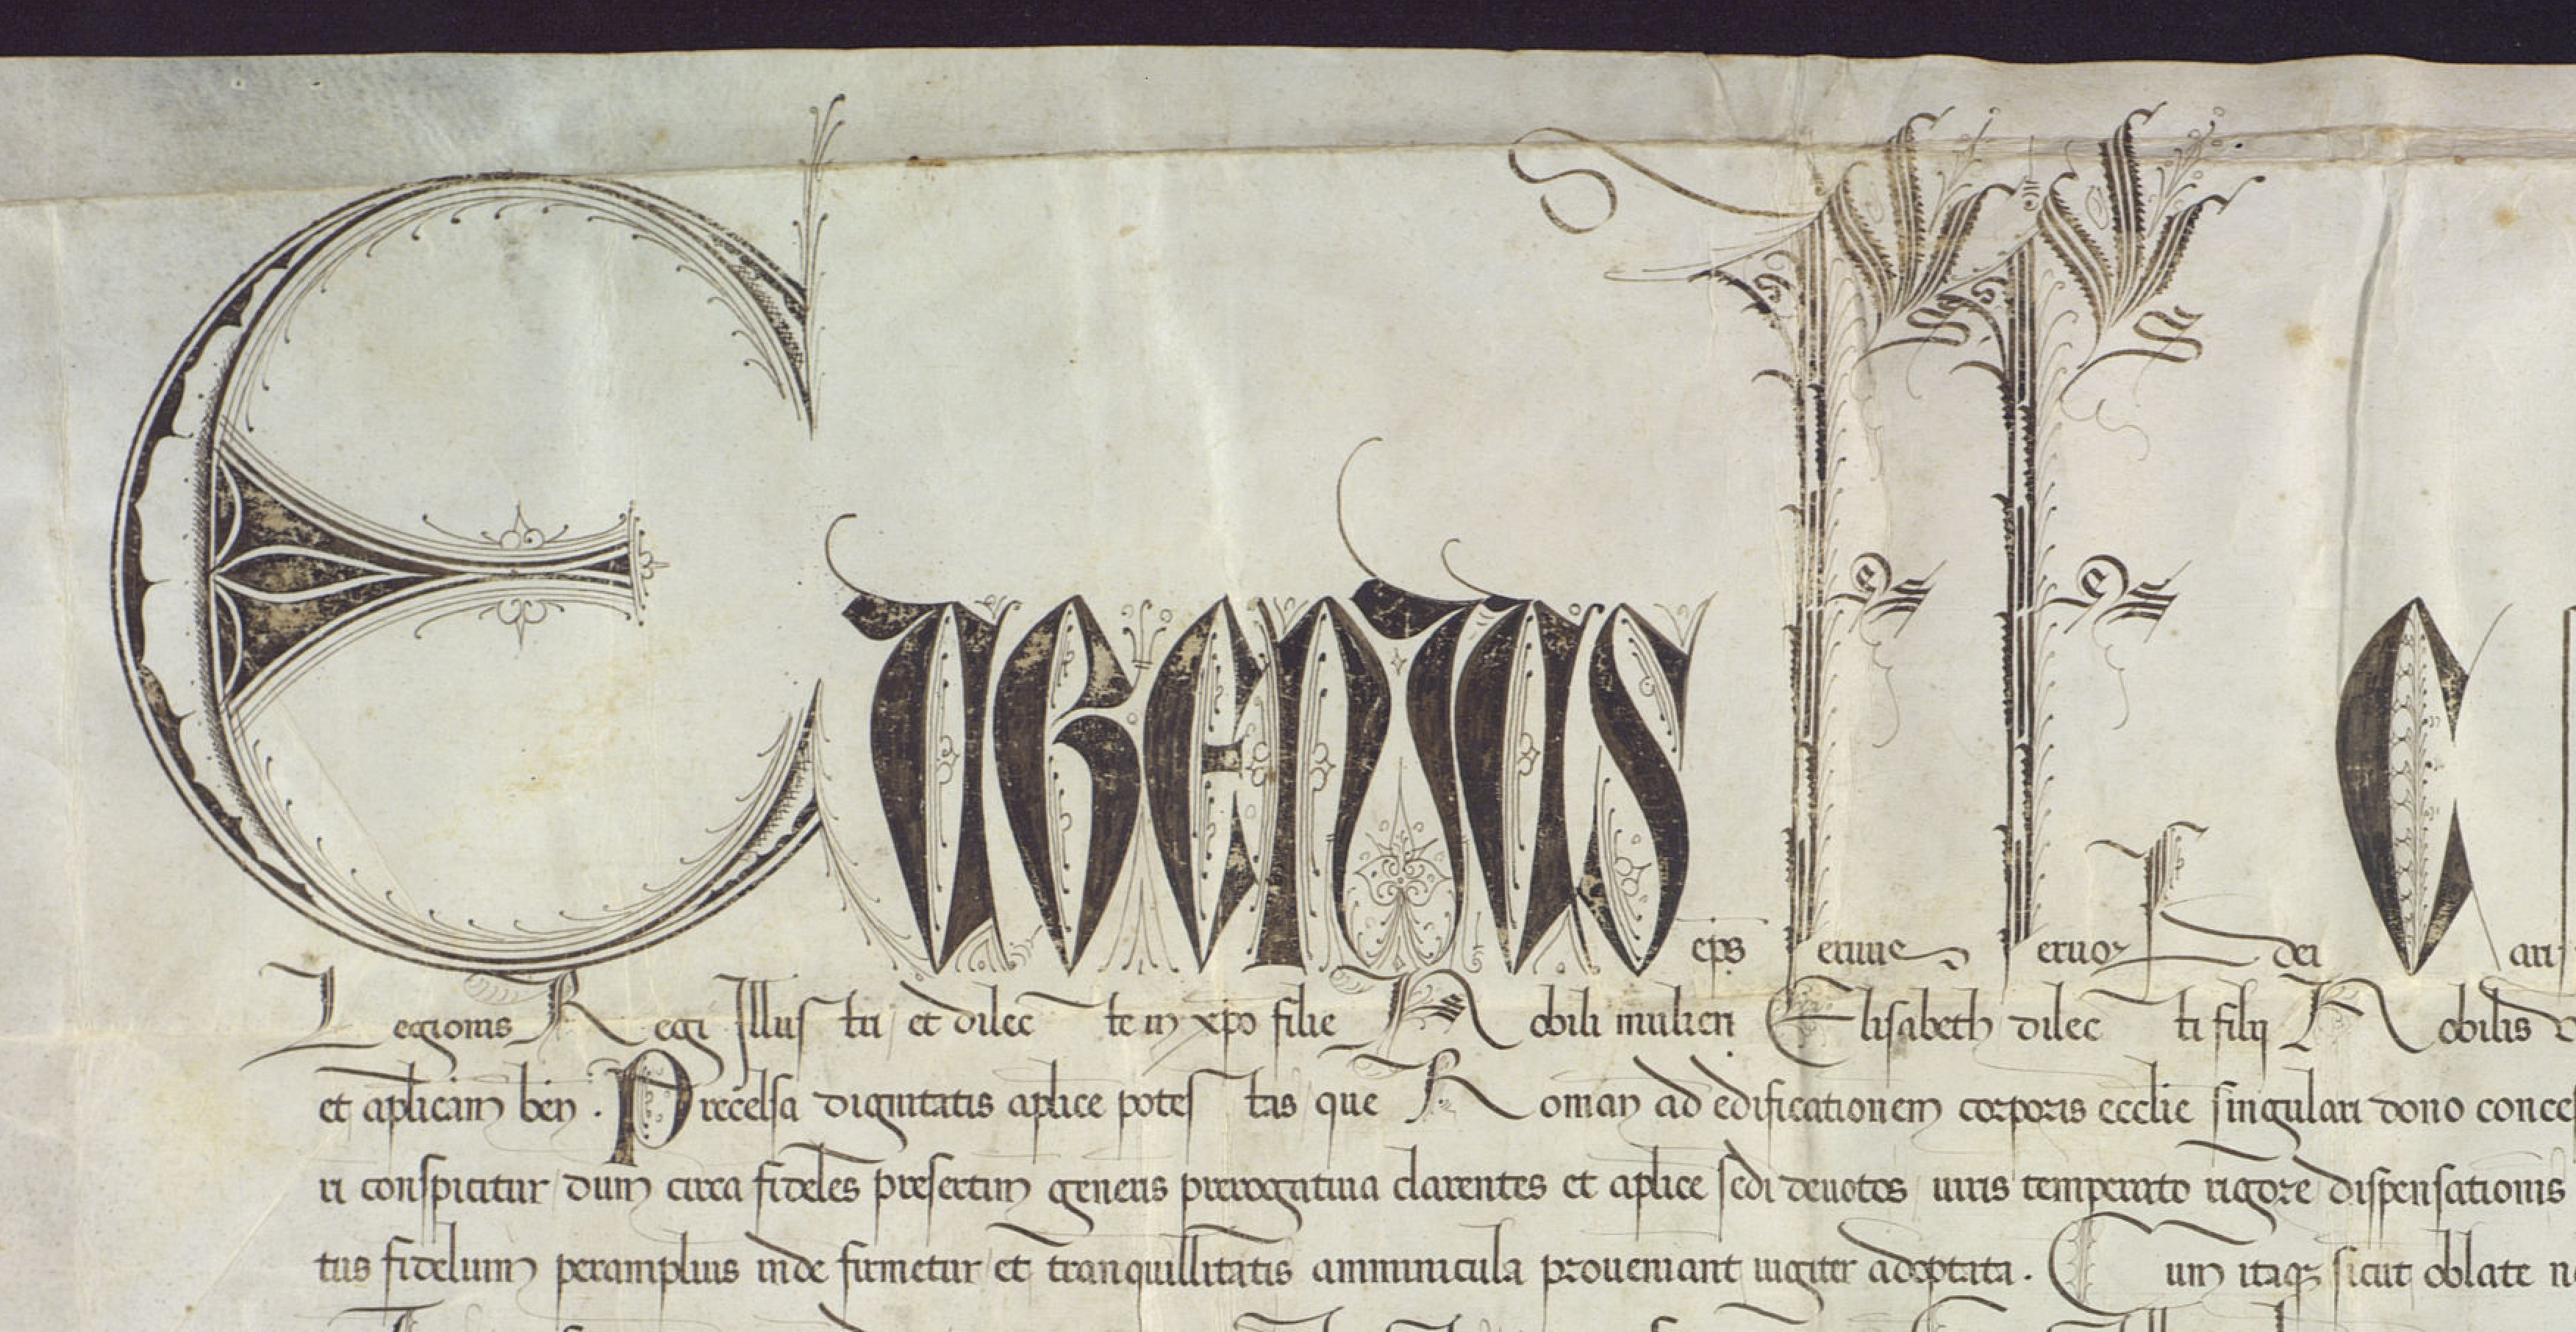 Eugenius eps Seruus Seruoꝝ dei Cari
Legionis Regi Illustri et dilecte in xpo filie Nobili mulieri Elisabeth dilecti filii Nobilis
et aplicam ben. Precelsa dignitatis aplice potestas que Roman ad edificationem corporis ecclie singulari dono conces
ri conspicitur dum circa fideles presertim generis prerogatiua clarentes et aplice sedi deuotos iuris temperato rigore dispensationis
tus fidelium peramplius inde firmetur et tranquillitatis amminicula proueniant iugiter adoptata. Cum itaqꝫ sicut oblate n